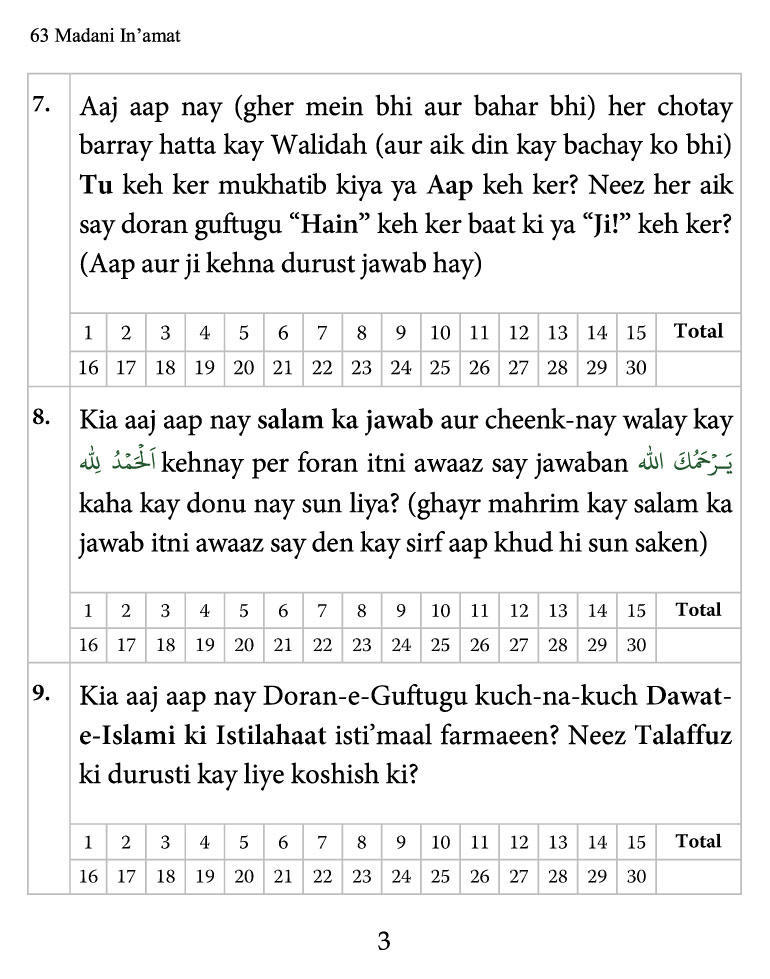 63 Madani In’amat
7. Aaj aap nay (gher mein bhi aur bahar bhi) her chotay
barray hatta kay Walidah (aur aik din kay bachay ko bhi)
Tu keh ker mukhatib kiya ya Aap keh ker? Neez her aik
say doran guftugu “Hain” keh ker baat ki ya “Ji!” keh ker?
(Aap aur ji kehna durust jawab hay)
1 2 3 4 5 6 7 8 9 10 11 12 13 14 15 Total
16 17 18 19 20 21 22 23 24 25 26 27 28 29 30
8. Kia aaj aap nay salam ka jawab aur cheenk-nay walay kay
اَلْحَمْدُ لِلّٰه kehnay per foran itni awaaz say jawaban يَـرْحَمُكَ اللّٰه
kaha kay donu nay sun liya? (ghayr mahrim kay salam ka
jawab itni awaaz say den kay sirf aap khud hi sun saken)
1 2 3 4 5 6 7 8 9 10 11 12 13 14 15 Total
16 17 18 19 20 21 22 23 24 25 26 27 28 29 30
9. Kia aaj aap nay Doran-e-Guftugu kuch-na-kuch Dawat-
e-Islami ki Istilahaat isti’maal farmaeen? Neez Talaffuz
ki durusti kay liye koshish ki?
1 2 3 4 5 6 7 8 9 10 11 12 13 14 15 Total
16 17 18 19 20 21 22 23 24 25 26 27 28 29 30
3